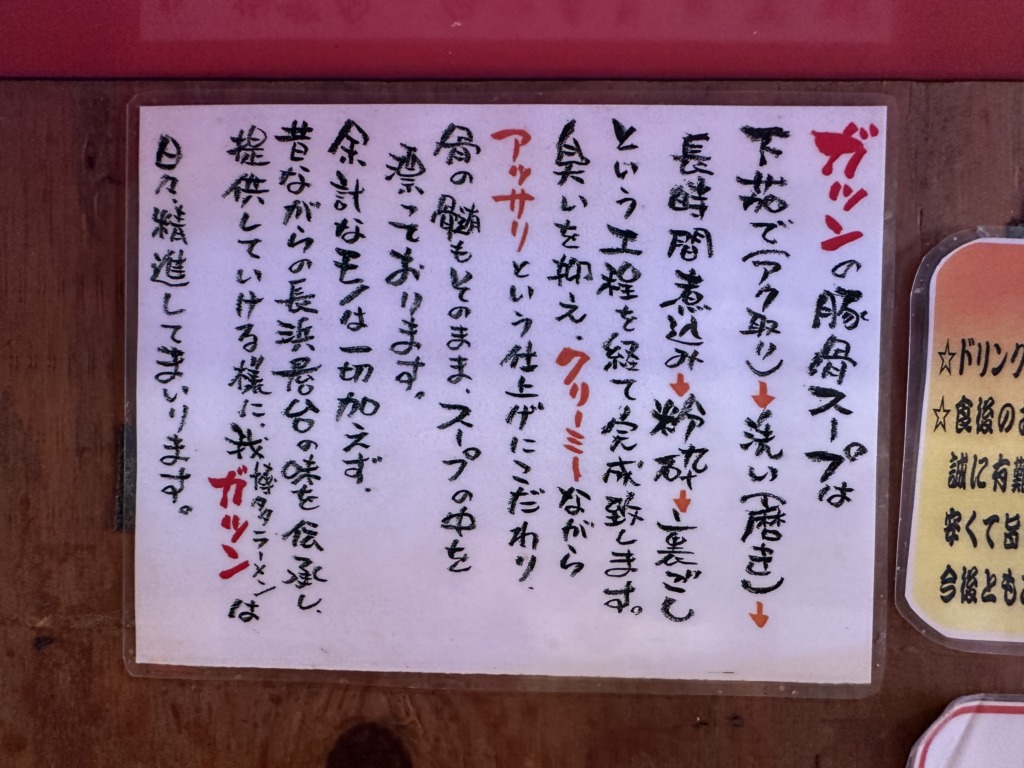 ガツンの豚骨スープは
下茹で(アク取り)→洗い(磨き)→
長時間煮込み→粉砕→裏ごし
という工程を経て完成致します。
臭いを抑え、クリーミーながら
アッサリという仕上げにこだわり、
骨の髄もそのまま、スープの中を
漂っております。
余計なモノは一切加えず、
昔ながらの長浜屋台の味を伝承し、
提供していける様に、我博多ラーメンガツンは
日々、精進してまいります。
☆ドリンク
☆食後のお
誠に有難
安くて旨
今後とも